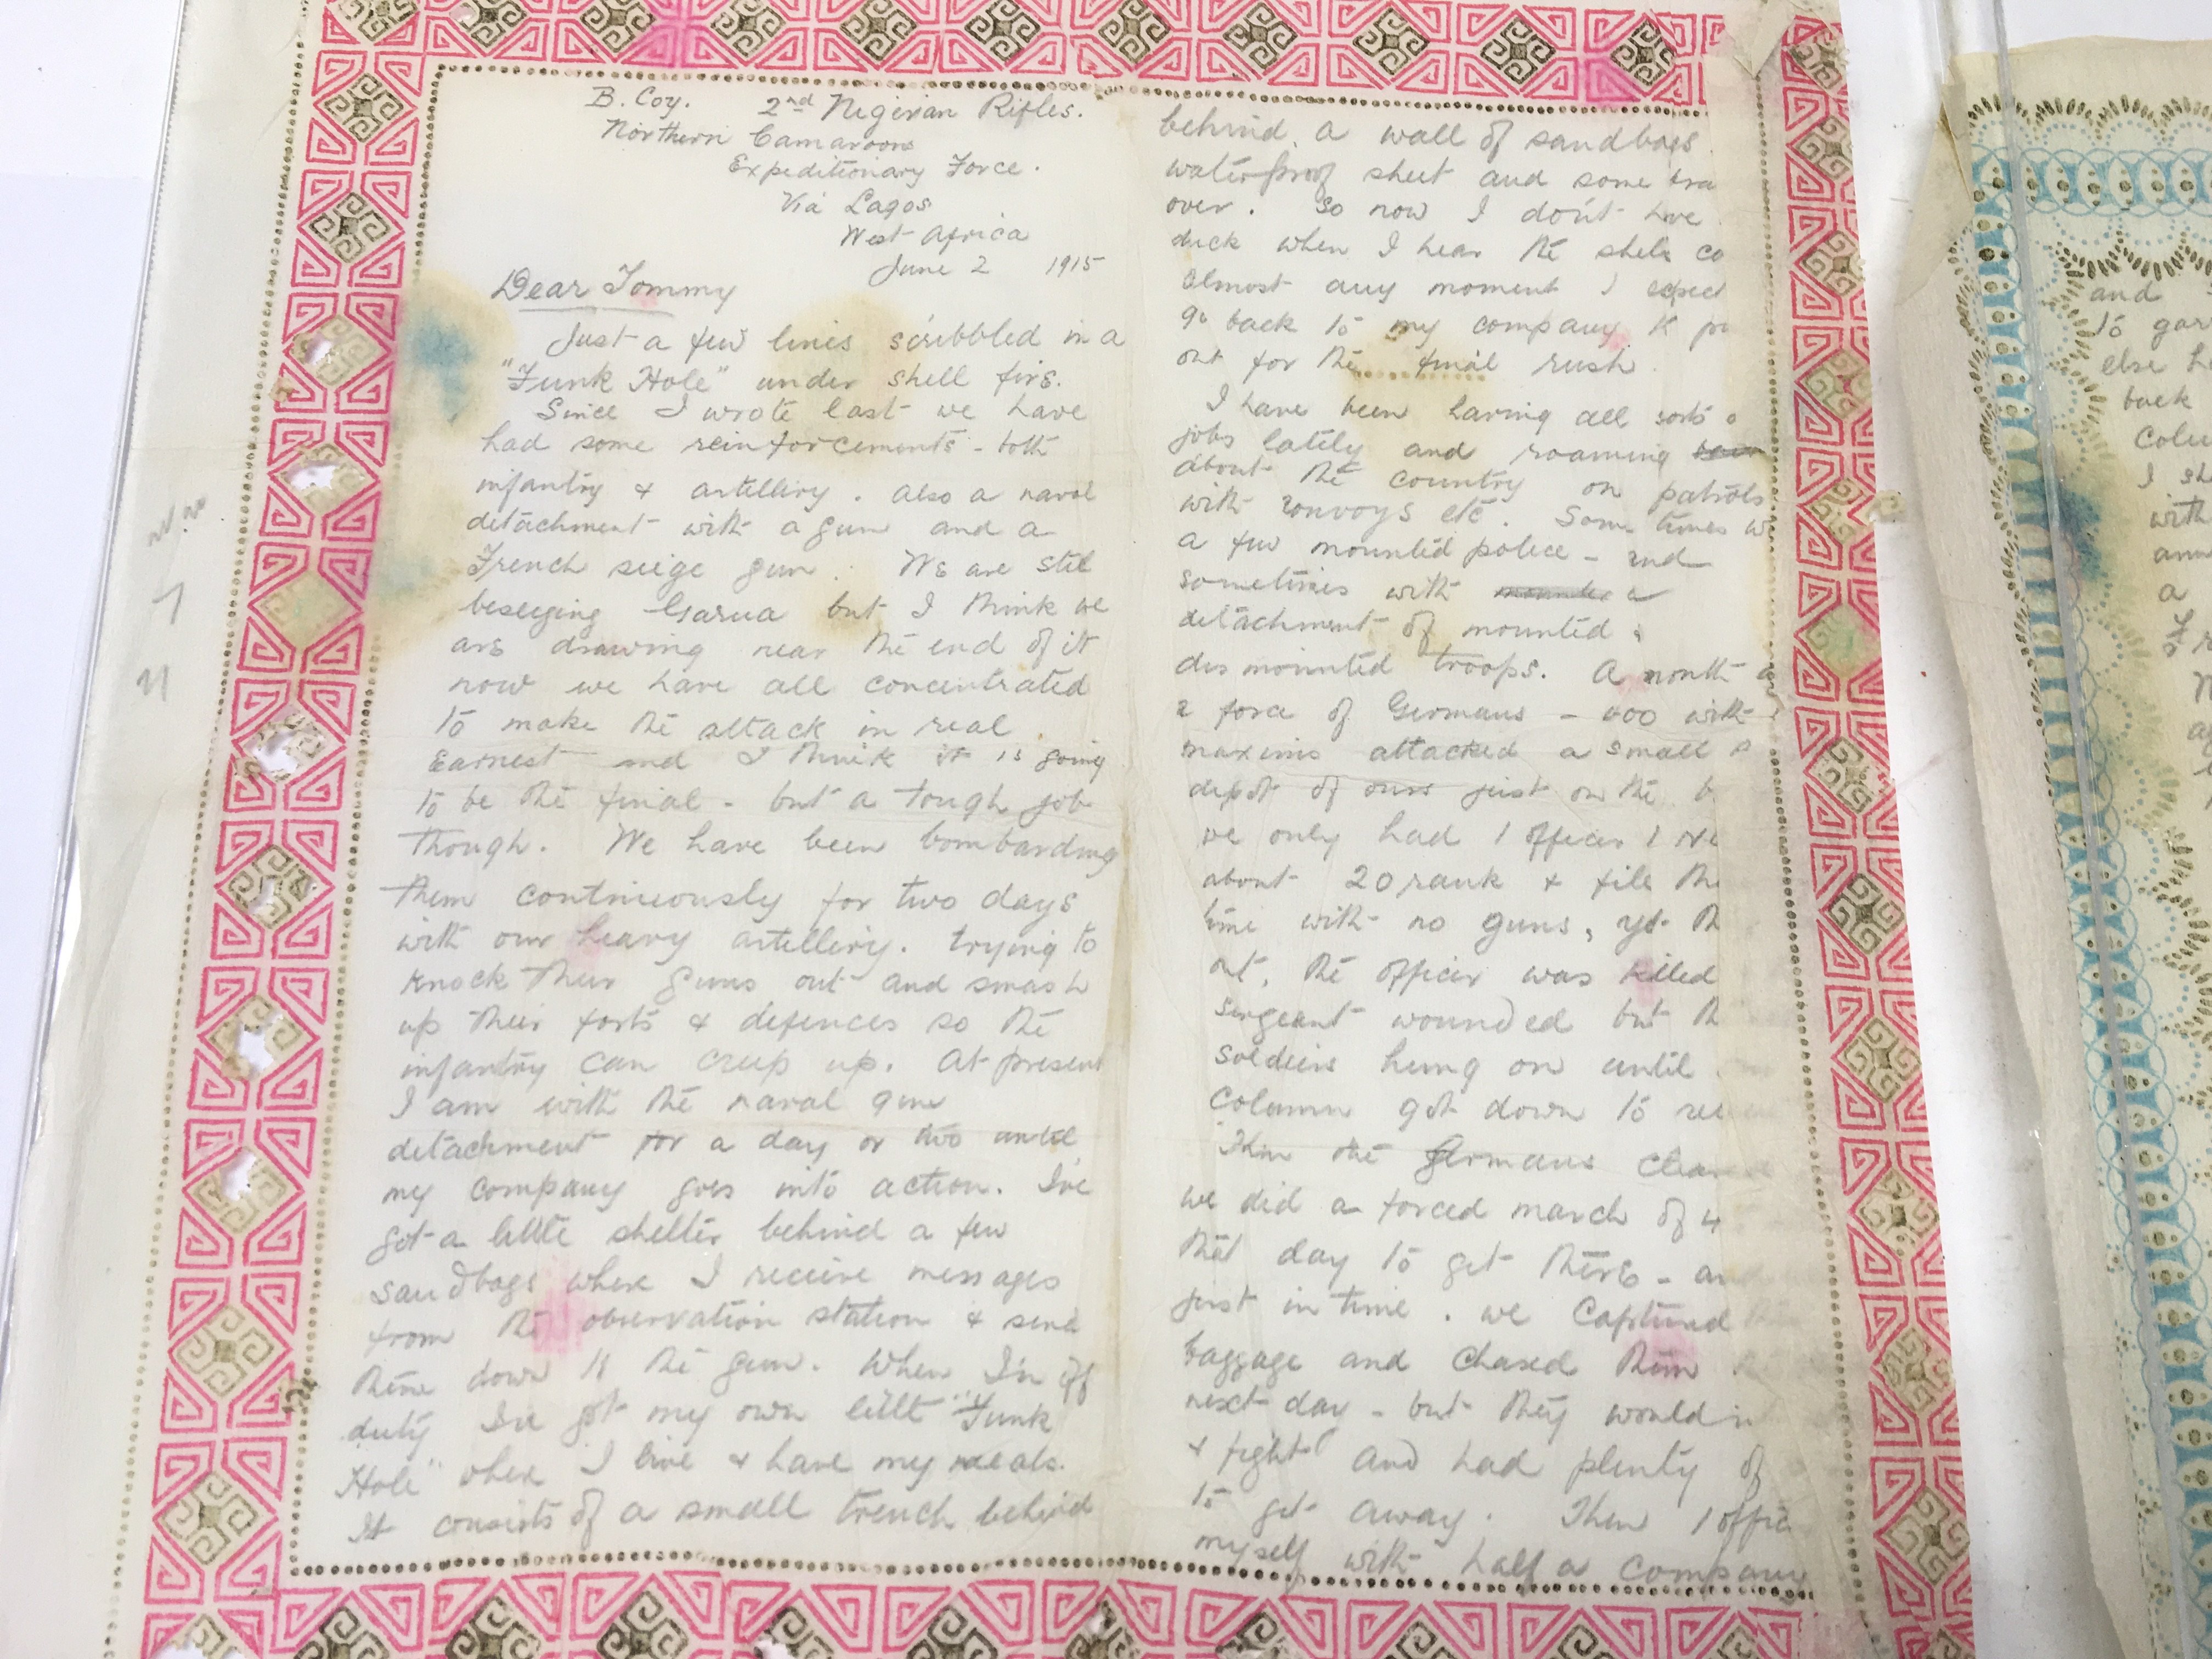 B. Coy. 2nd Nigerian Rifles.
Northern Camaroons
Expeditionary Force.
Via Lagos
West Africa
June 2 1915
Dear Tommy
Just a few lines scribbled in a
"Funk Hole" under shell fire.
Since I wrote last we have
had some reinforcements - both
infantry & artillery. Also a naval
detachment with a gun and a
French seige gun. We are still
beseiging Garua but I think we
are drawing near the end of it
now we have all concentrated
to make the attack in real
Earnest and I think it is going
to be the final - but a tough job
though. We have been bombarding
them continuously for two days
with our heavy artillery. trying to
knock their guns out and smash
up their forts & defences so the
infantry can creep up. At present
I am with the naval gun
detachment for a day or two until
my company goes into action. I've
got a little shelter behind a few
sandbags where I receive messages
from the observation station & send
them down to the gun. When I'm off
duty I've got my own little "Funk
Hole" where I live & have my meals.
It consists of a small trench behind
behind a wall of sandbags
waterproof sheet and some
over. So now I don't have
duck when I hear the shells
almost any moment I expect
go back to my company to
out for the final rush.
I have been having all sorts o
jobs lately and roaming
about the country on patrols
with convoys etc. Some times
a few mounted police - and
sometimes with a
detachment of mounted &
dismounted troops. A month
a force of Germans - 600 with
maxims attacked a small
depot of ours just on the
we only had 1 officer 1
about 20 rank & file
time with no guns, yet
out, the officer was killed
sergeant wounded but
soldiers hung on until
column got down to
Then the Germans
we did a forced march of 4
that day to get there -
just in time. we captured
baggage and chased them
next day - but they would
& fight and had plenty of
to get away. Then 1
myself with half a company
and
to
else
back
I
with
a